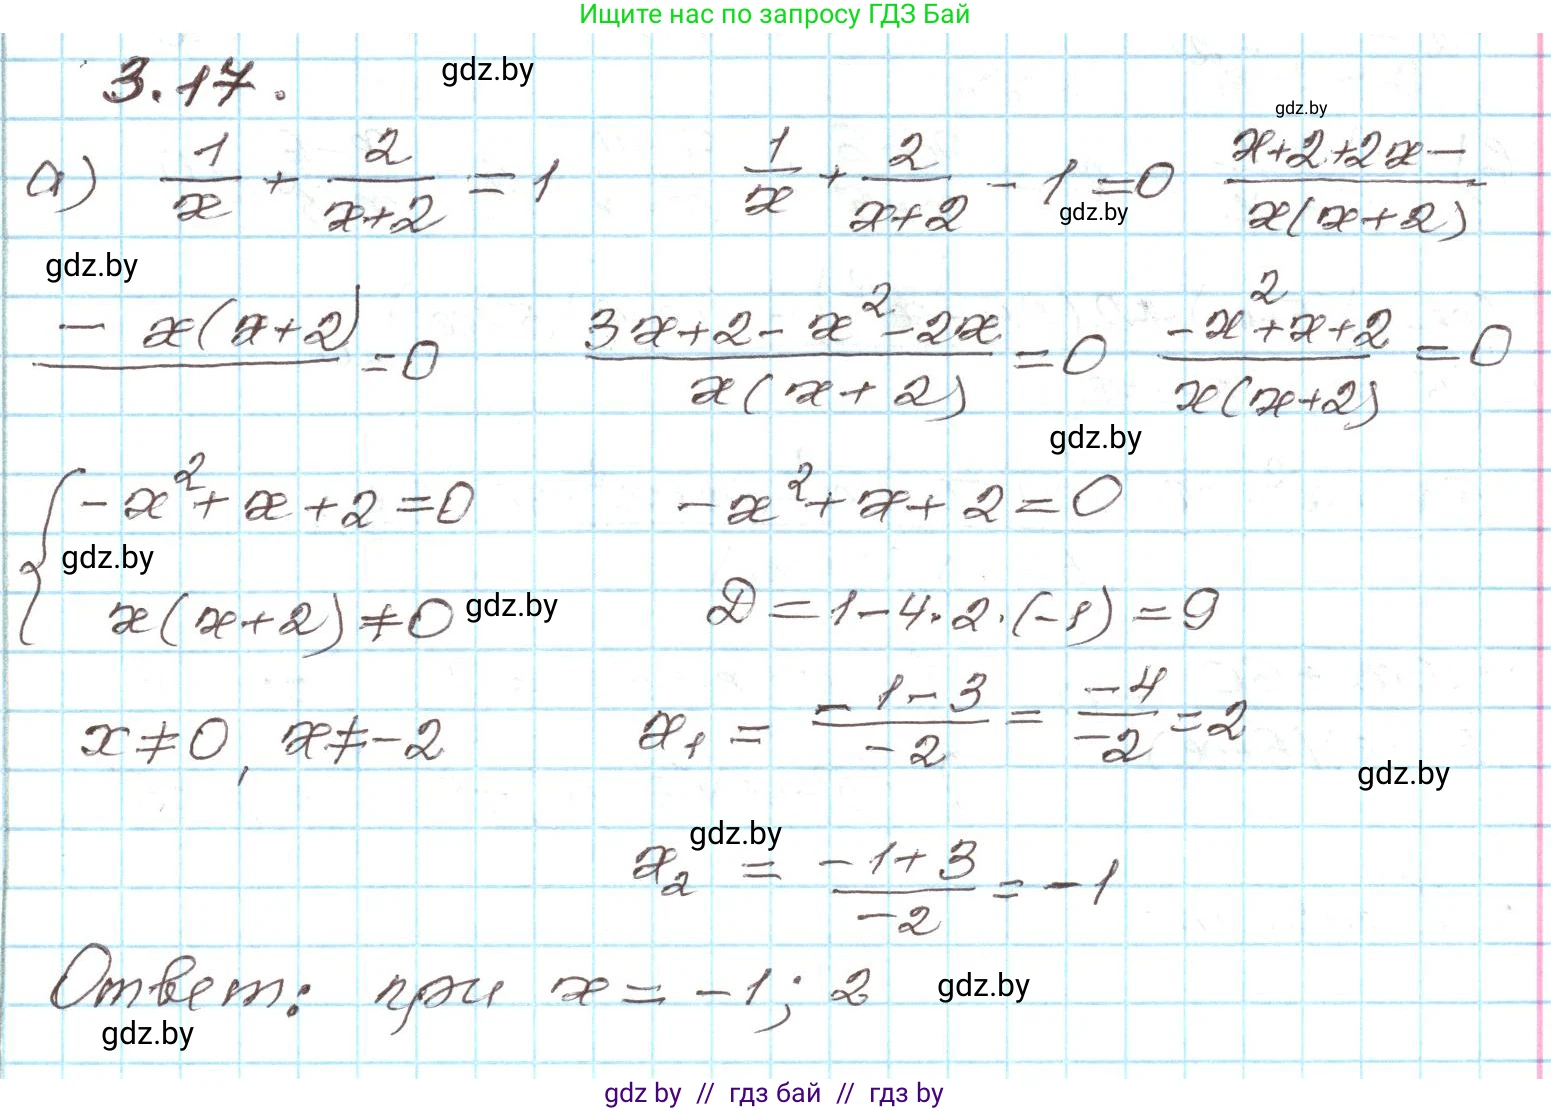 Ищите нас по запросу ГДЗ Бай
3.17. gdz.by
gdz.by
а) 1/x + 2/(x+2) = 1   1/x + 2/(x+2) - 1 = 0   (x+2+2x-)/(x(x+2))
gdz.by
gdz.by
(- x(x+2))/ = 0   (3x+2-x²-2x)/(x(x+2)) = 0   (-x²+x+2)/(x(x+2)) = 0
gdz.by
{ -x²+x+2=0   -x²+x+2=0
gdz.by
x(x+2)≠0 gdz.by   D=1-4·2·(-1)=9
x≠0, x≠-2   x₁ = (-1-3)/(-2) = (-4)/(-2) = 2
gdz.by
gdz.by
x₂ = (-1+3)/(-2) = -1
Ответ: при x = -1; 2 gdz.by
gdz.by
gdz by // гдз бай // гдз by